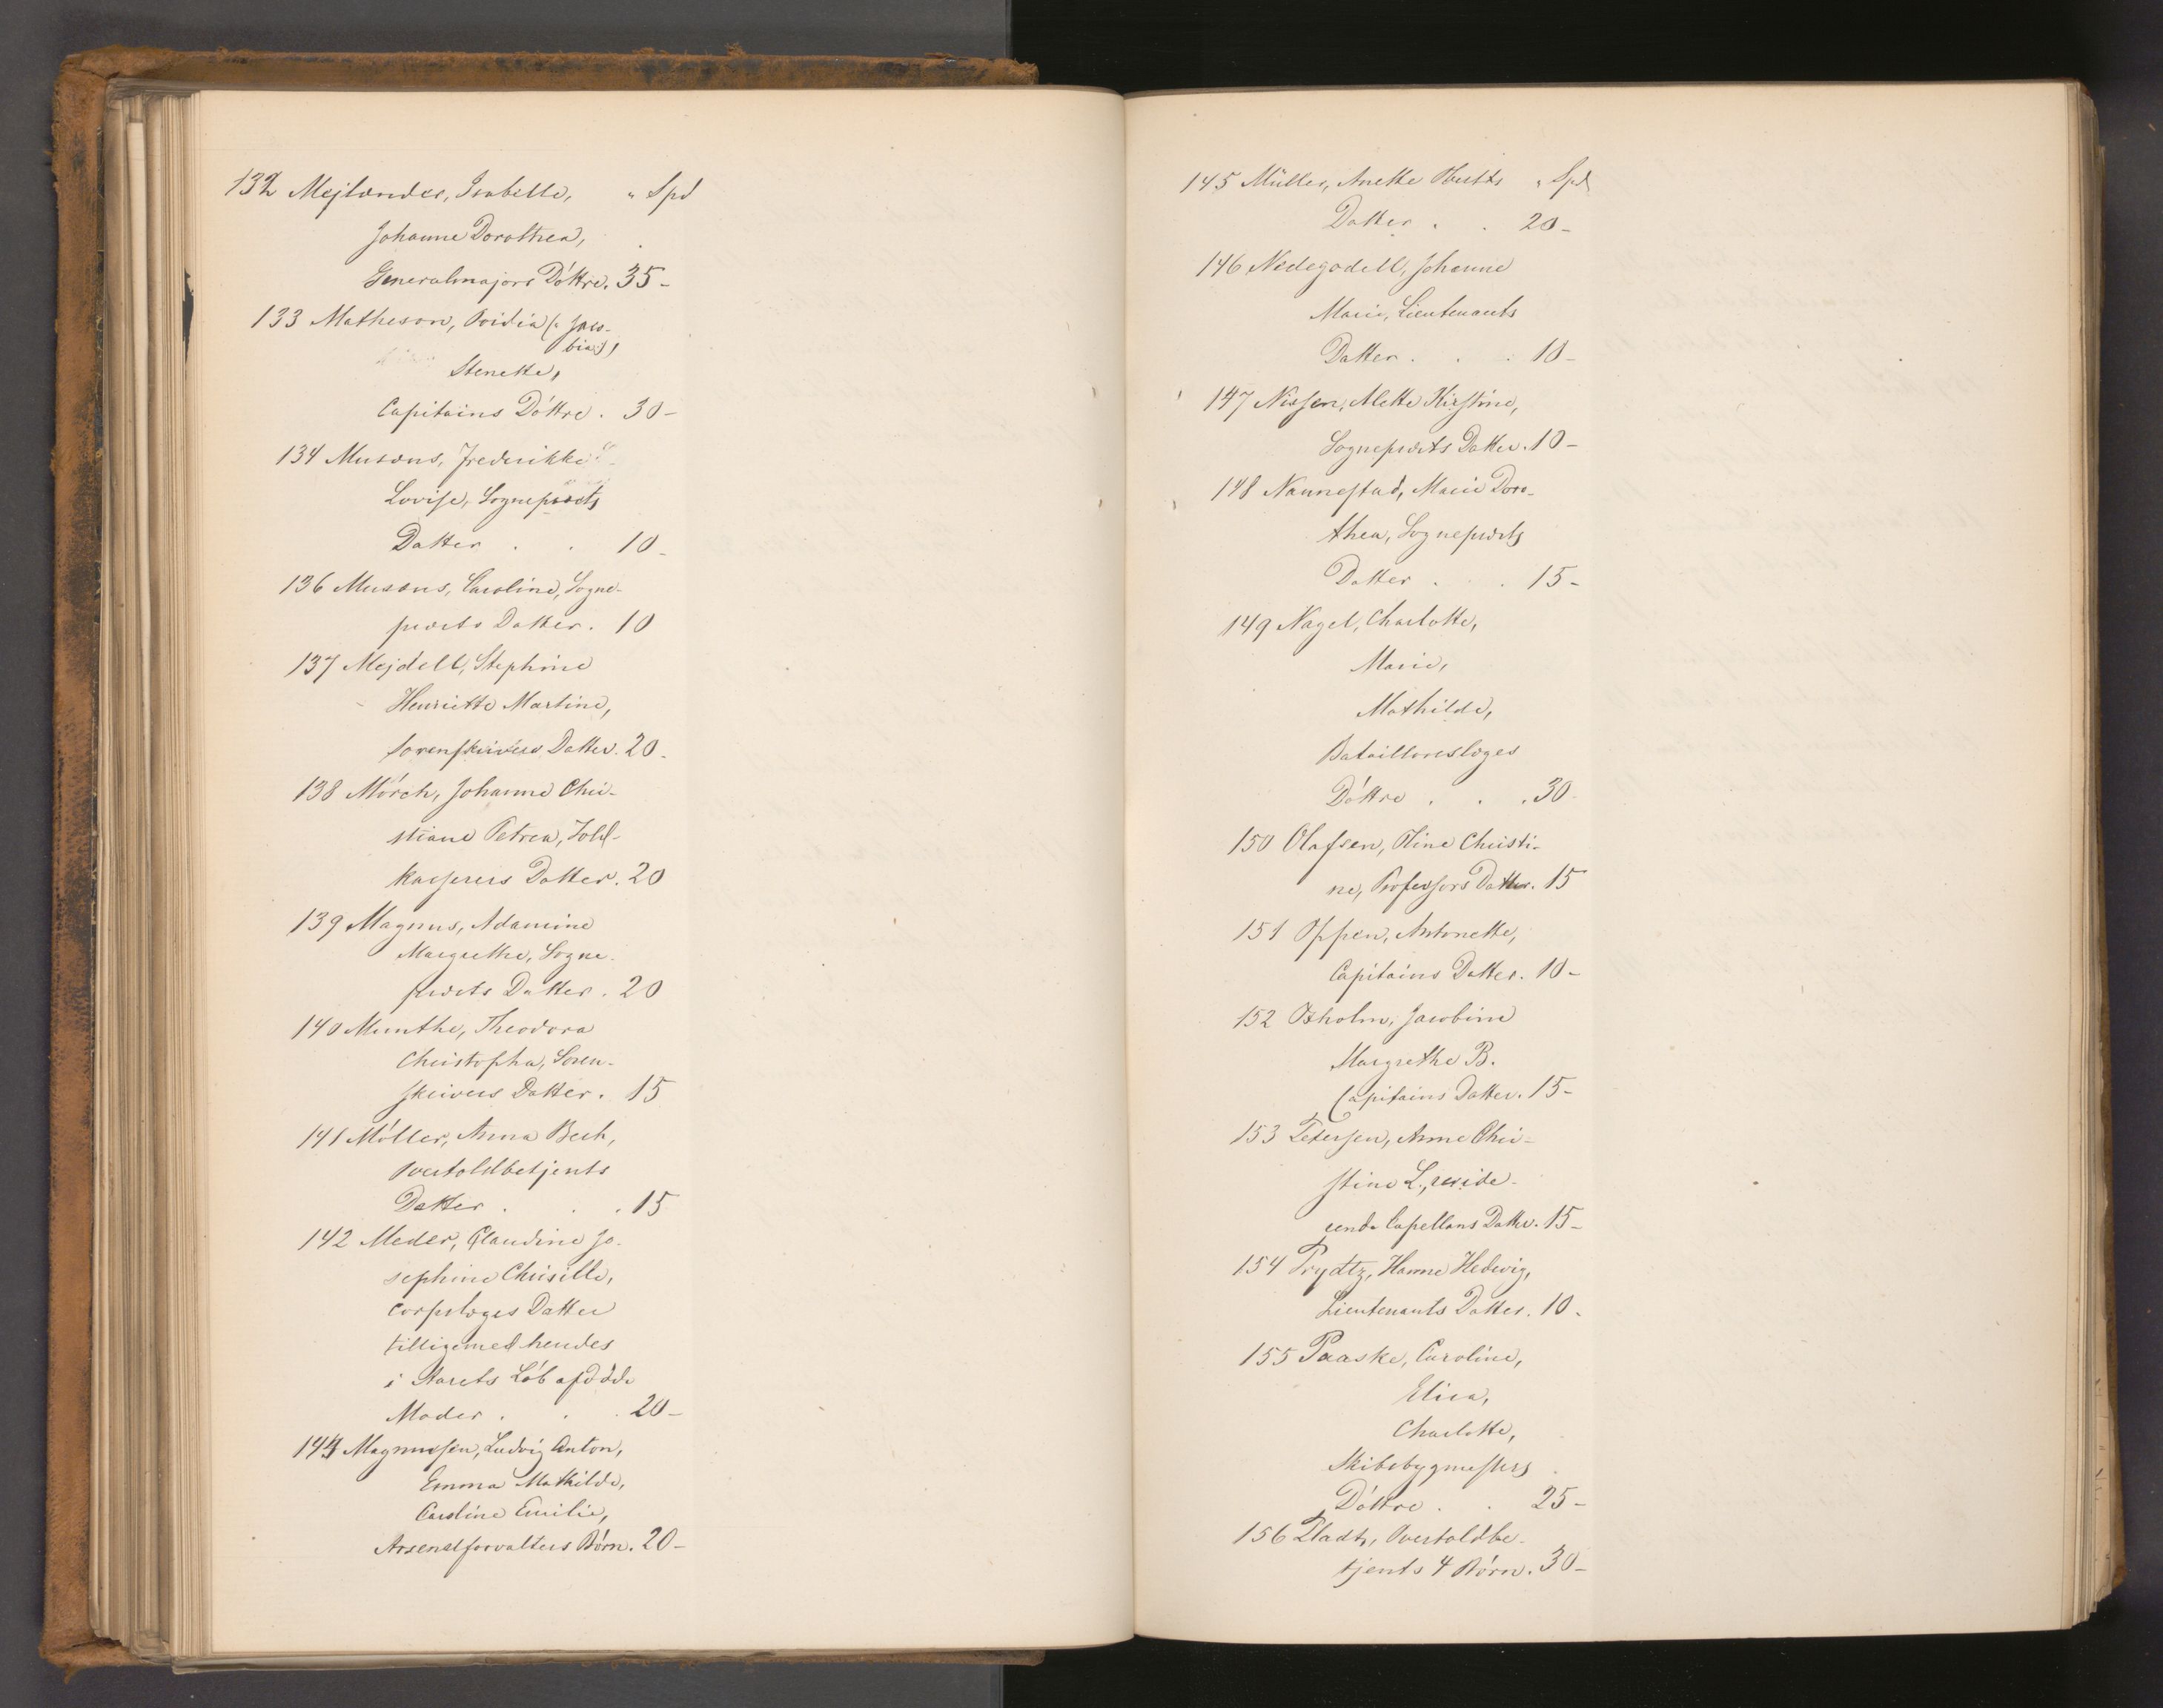 132 Mejlænder, Isabelle, " Spd
Johanne Dorothea,
Generalmajors Döttre. 35-
133 Matheson, Ovidia (: Jaco-
bia :),
Stenette,
Capitains Döttre. 30-
134 Musæus, Frederikke
Lovise, Sognepræsts
Datter . . 10-
136 Musæus, Caroline, Sogne-
præsts Datter. 10
137 Mejdell, Stephine
Henriette Martine,
Sorenskrivers Datter. 20-
138 Mörch, Johanne Chri-
stiane Petrea, Told-
kasserers Datter. 20
139 Magnus, Adamine
Margrethe, Sogne-
præsts Datter. 20
140 Munthe, Theodora
Christopha, Soren-
skrivers Datter. 15
141 Möller, Anna Bech,
Overtoldbetjents
Datter . . . 15
142 Meder, Claudine Jo-
sephine Chrisille,
Corpslæges Datter
tilligemed hendes
i Aarets Löb afdöde
Moder . . . 20-
144 Magnussen, Ludvig Anton,
Emma Mathilde,
Caroline Emilie,
Arsenalforvalters Börn. 20-
145 Müller, Anette " Spd
Datter . . 20-
146 Nedegodell, Johanne
Marie, Lieutenants
Datter . . . 10-
147 Nissen, Alette Kirstine,
Sognepræsts Datter. 10-
148 Nannestad, Marie Doro-
thea, Sognepræsts
Datter . . . 15-
149 Nagel, Charlotte,
Marie,
Mathilde,
Bataillonslæges
Döttre . . . 30-
150 Olafsen, Oline Christi-
ne, Professors Datter. 15
151 Oppen, Antonette,
Capitains Datter. 10-
152 Oxholm, Jacobine
Margrethe B.
Capitains Datter. 15-
153 Petersen, Anne Chri-
stine L., reside-
rende Capellans Datter. 15-
154 Prydtz, Hanne Hedevig,
Lieutenants Datter. 10-
155 Paaske, Caroline,
Elisa,
Charlotte,
Skibsbygmesters
Döttre . . 25-
156 Pladt, Overtoldbe-
tjents 4 Börn. 30-